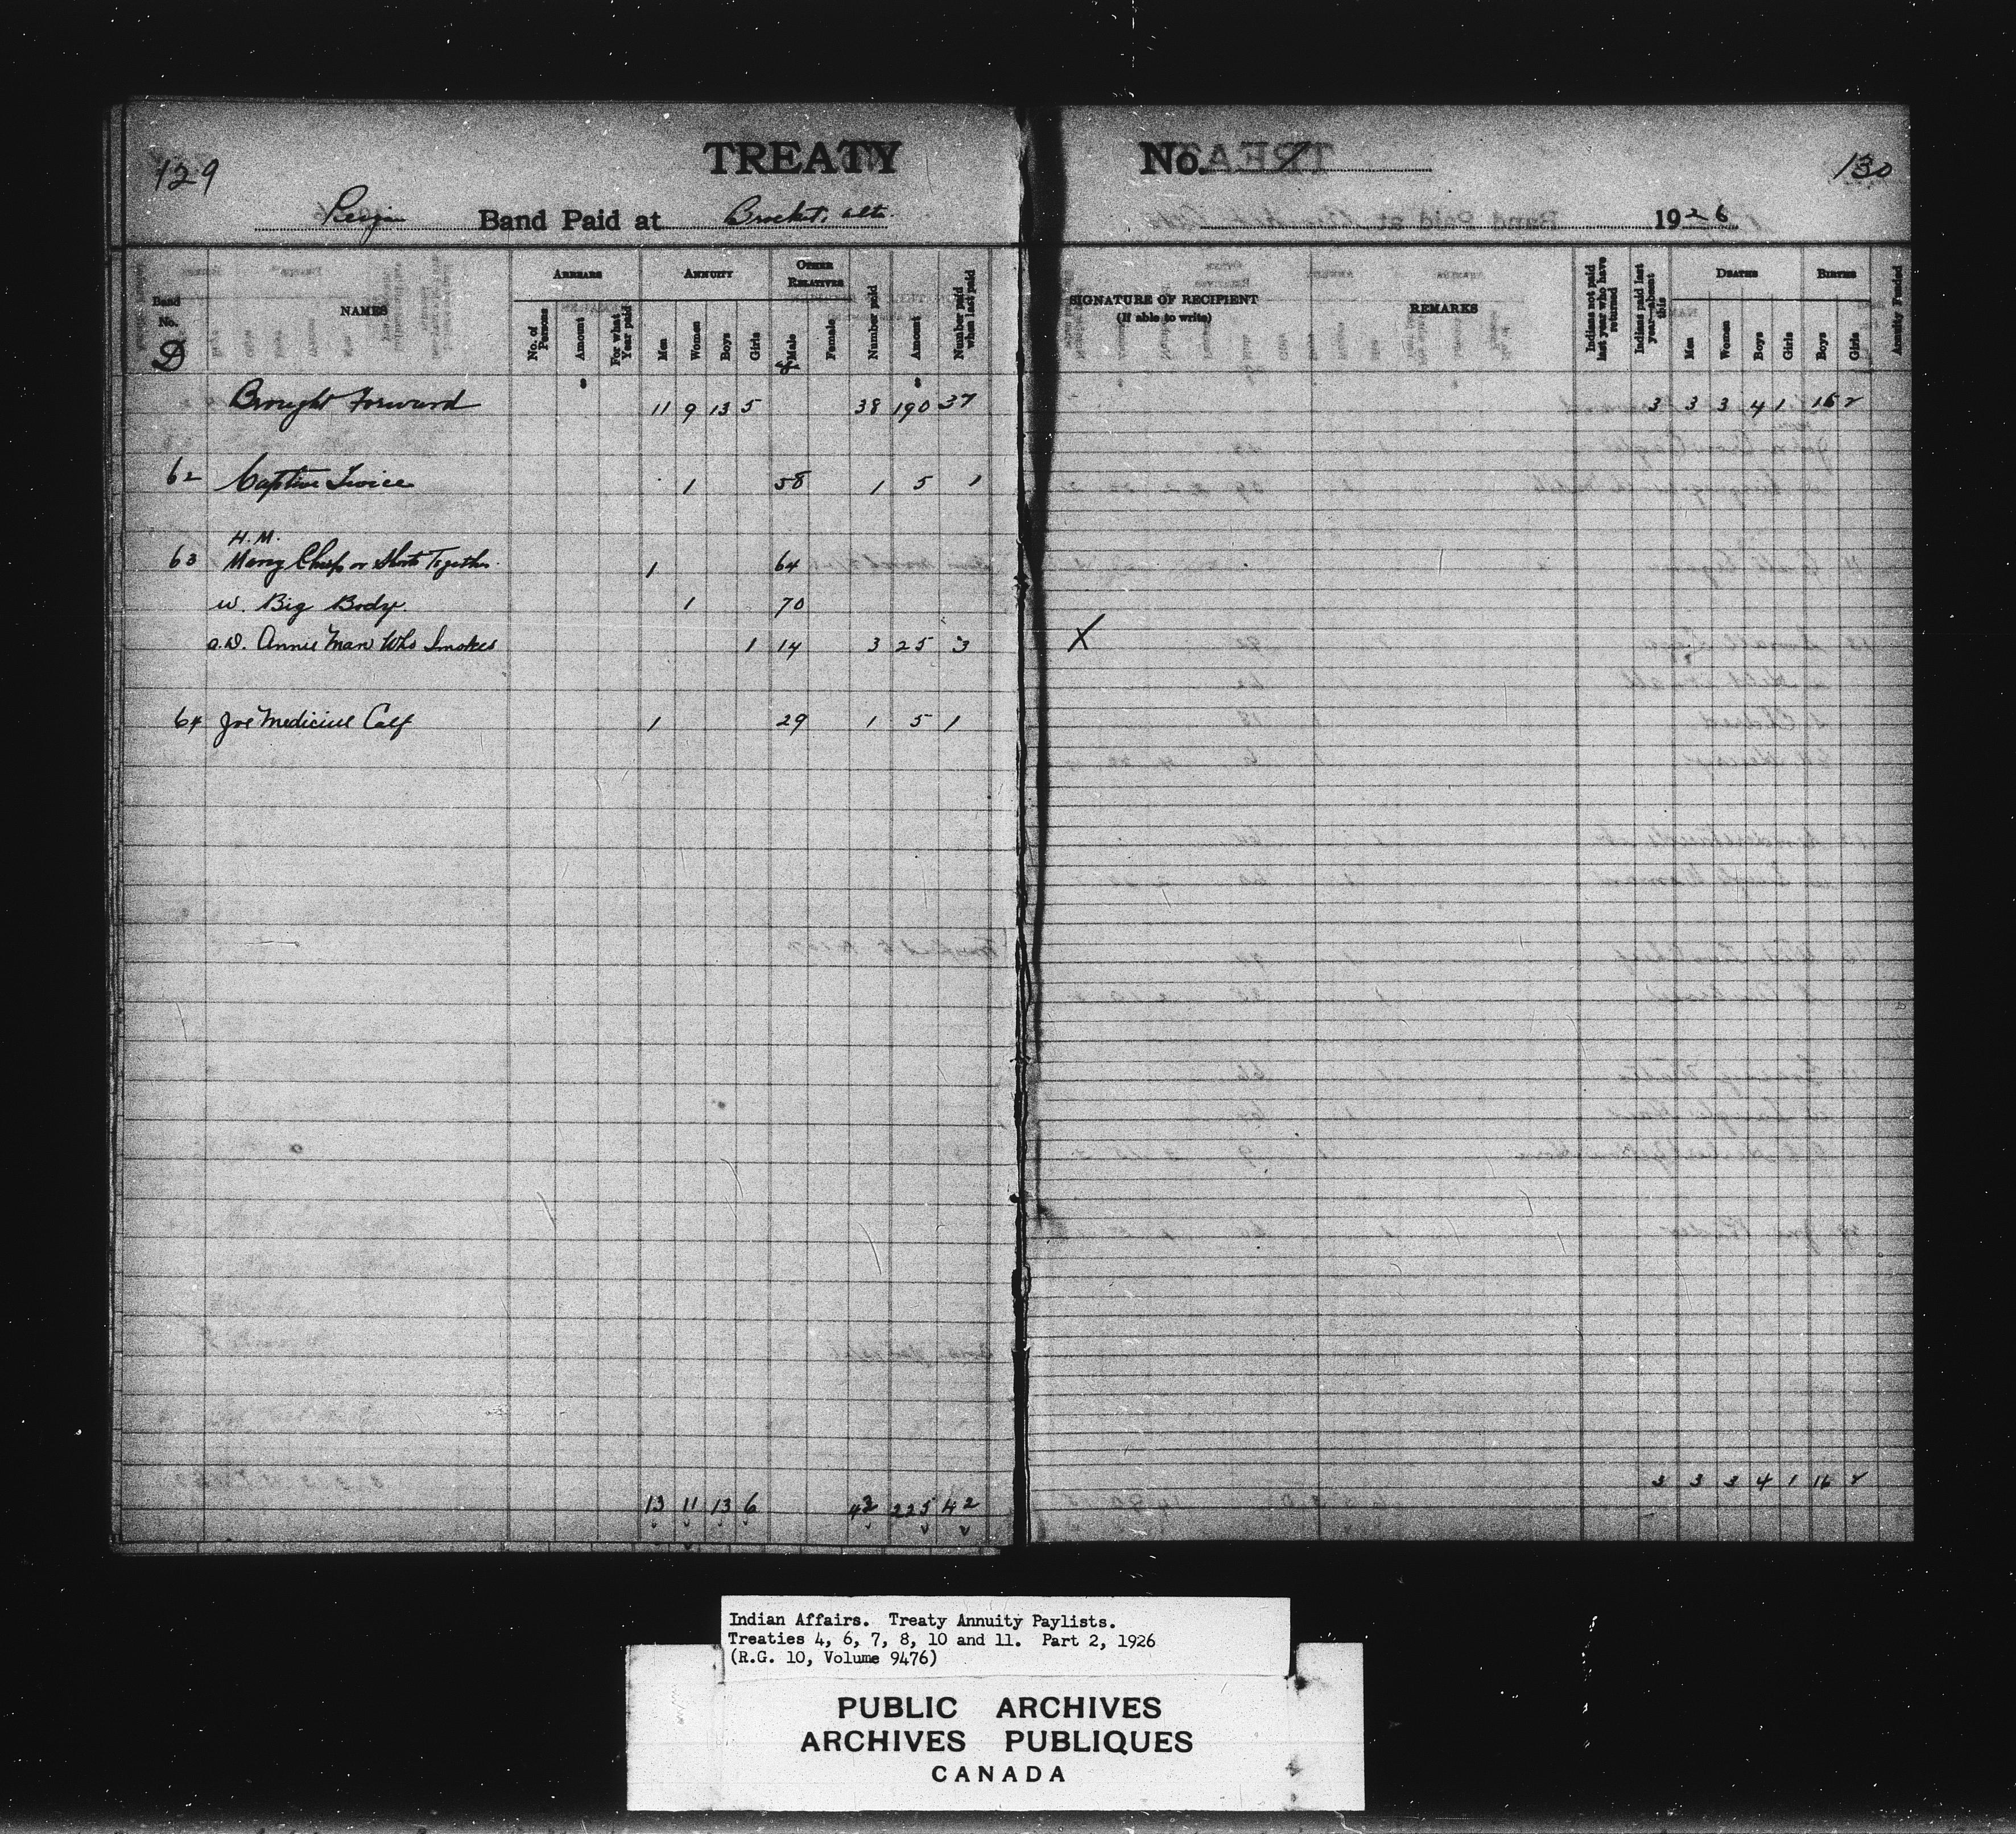 129
TREATY No. 7
130
Peigan Band Paid at Brocket, Alta. 1926
Band No. NAMES ARREARS ANNUITY OTHER RELATIVES Number paid Amount Number paid when last paid SIGNATURE OF RECIPIENT (If able to write) REMARKS Indians not paid last year who have returned Indians paid last year—absent this DEATHS BIRTHS Annuity Funded
No. of Persons Amount For what Year paid Men Women Boys Girls Male Female Men Women Boys Girls Boys Girls
D
$ $
Brought Forward 11 9 13 5 38 190 37 3 3 3 4 1 16 2
62 Captive Twice 1 58 1 5 1
H. M.
63 Many Chiefs or Shorts Together 1 64
w. Big Body. 1 70
a.D. Annie Man Who Smokes 1 14 3 25 3 X
64 Joe Medicine Calf 1 29 1 5 1
3 3 3 4 1 16 2
13 11 13 6 43 225 42
Indian Affairs. Treaty Annuity Paylists.
Treaties 4, 6, 7, 8, 10 and 11. Part 2, 1926
(R.G. 10, Volume 9476)
PUBLIC ARCHIVES
ARCHIVES PUBLIQUES
CANADA